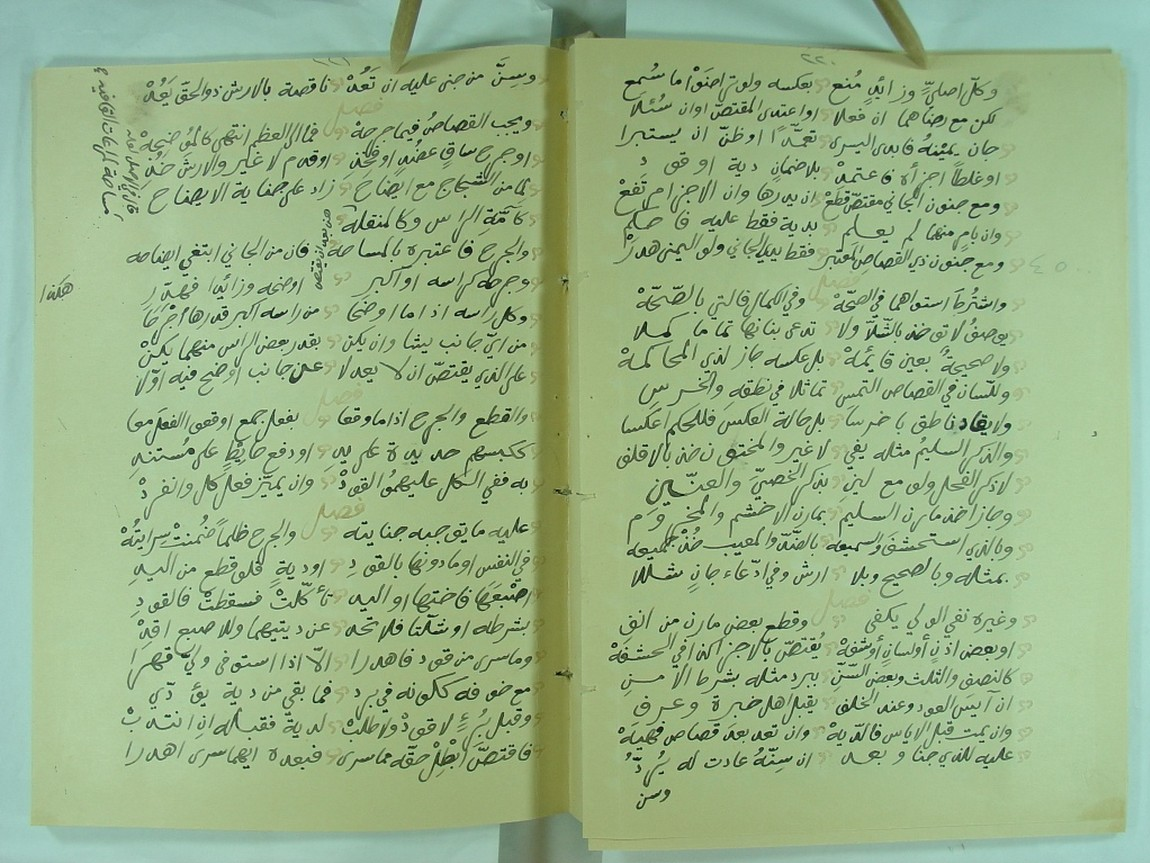 ٢٢٠
وكل اصلي وزائد منع بعكسه ولو تراضوا ما سمع
لكن مع رضاهما ان فعلا او اعتدى المقتص او ان سئلا
جان يمينه فابدى اليسرى تعمدا او ظن ان يستبرا
او غلطا اجزأه فاعتمد بلا ضمان دية او قود
ومع جنون الجاني مقتص قطع ان يدرها وان الاجزا لم تقع
وان يام منهما لم يعلم بدية فقط عليه فاحكم
ومع جنون ذي القصاص اعتبر فقط يد الجاني ولو اليمنى هدر
فصل
واشترط استواهما في الصحة وفي الكمال فالتي بالصحة
يوصف لا تؤخذ بالشلا ولا تدعى بنانها تماما كملا
ولا صحيحة بعين قائمة بل عكسه جاز لدى المحاكمة
وللسان في القصاص التمس تماثلا في نطقه والخرس
ولا يقاد ناطق باخرسا بل حالة العكس فللحكم اعكسا
والذكر السليم مثله يفي لا غير والمختون خذ بالاقلف
لا ذكر الفحل ولو مع لين بذكر الخصي والعنين
وجاز اخذ مارن السليم بمارن الاخشم والمخروم
وبالذي استحشف والسميعه بالضد والمعيب خذ جميعه
بمثله وبالصحيح وبلا ارش وفي ادعاء جان شللا
فصل
وغيره نفي الولي يكفي وقطع بعض مارن من انف
او بعض اذن او لسان او شفة يقتص بالاجزا كذا في الحشفة
كالنصف والثلث وبعض السن يبرد مثله بشرط الامن
ان آيس العود وعند الخلف يقبل اهل خبرة وعرف
وان يمت قبل الاياس فالدية وان تعد بعد قصاص فهيه
عليه للذي جنا وبعد ان سنه عادت له يرد
وسن
وسن من جنى عليه ان تعد ناقصة بالارش ذو الحق يعد
فصل
ويجب القصاص فيما جرحه فما الى العظم انتهى كالموضحة
او جرح ساق عضد او فخذ او قدم لا غير والارش خذ
لما من الشجاج مع ايضاح زاد على جناية الايضاح
كآمة الراس وكالمنقلة
والجرح فاعتبره بالمساحة فان من الجاني ابتغي ايضاحه
وجرحه كراسه او اكبر اوضحه وزائدا فهدر
وكل راسه اذا ما اوضحا من راسه اكبر قدرها اجرحا
من اي جانب يشا وان يكن بقدر بعض الراس منهما يكن
على الذي يقتص ان لا يعدلا عن جانب اوضح فيه اولا
فصل
والقطع والجرح اذا ما وقعا بفعل جمع اوقعوا الفعل معا
ككبسهم حديدة على يد او دفع حايط على مستند
به ففي الكل عليهمو القود وان يميز فعل كل وانفرد
فصل
عليه ما يوجبه جنايته والجرح ظلما ضمنت سرايته
في النفس او ما دونها بالقود او دية فلو قطع من اليد
اصبعها فاختها او اليد تأكلت فسقطت فالقود
بشرطه او شلتا فلا تحد عن ديتيهما وللاصبع اقد
وما سرى من قود فاهدرا الا اذا استوفى ولي قهرا
مع خوفه ككونه في برد فما بقي من دية يؤدي
وقبل برء لا قود ولا طلب لدية فقبله ان انتدب
فاقتص ابطل حقه مما سرى فبعده ايهما سرى اهدرا
هكذا